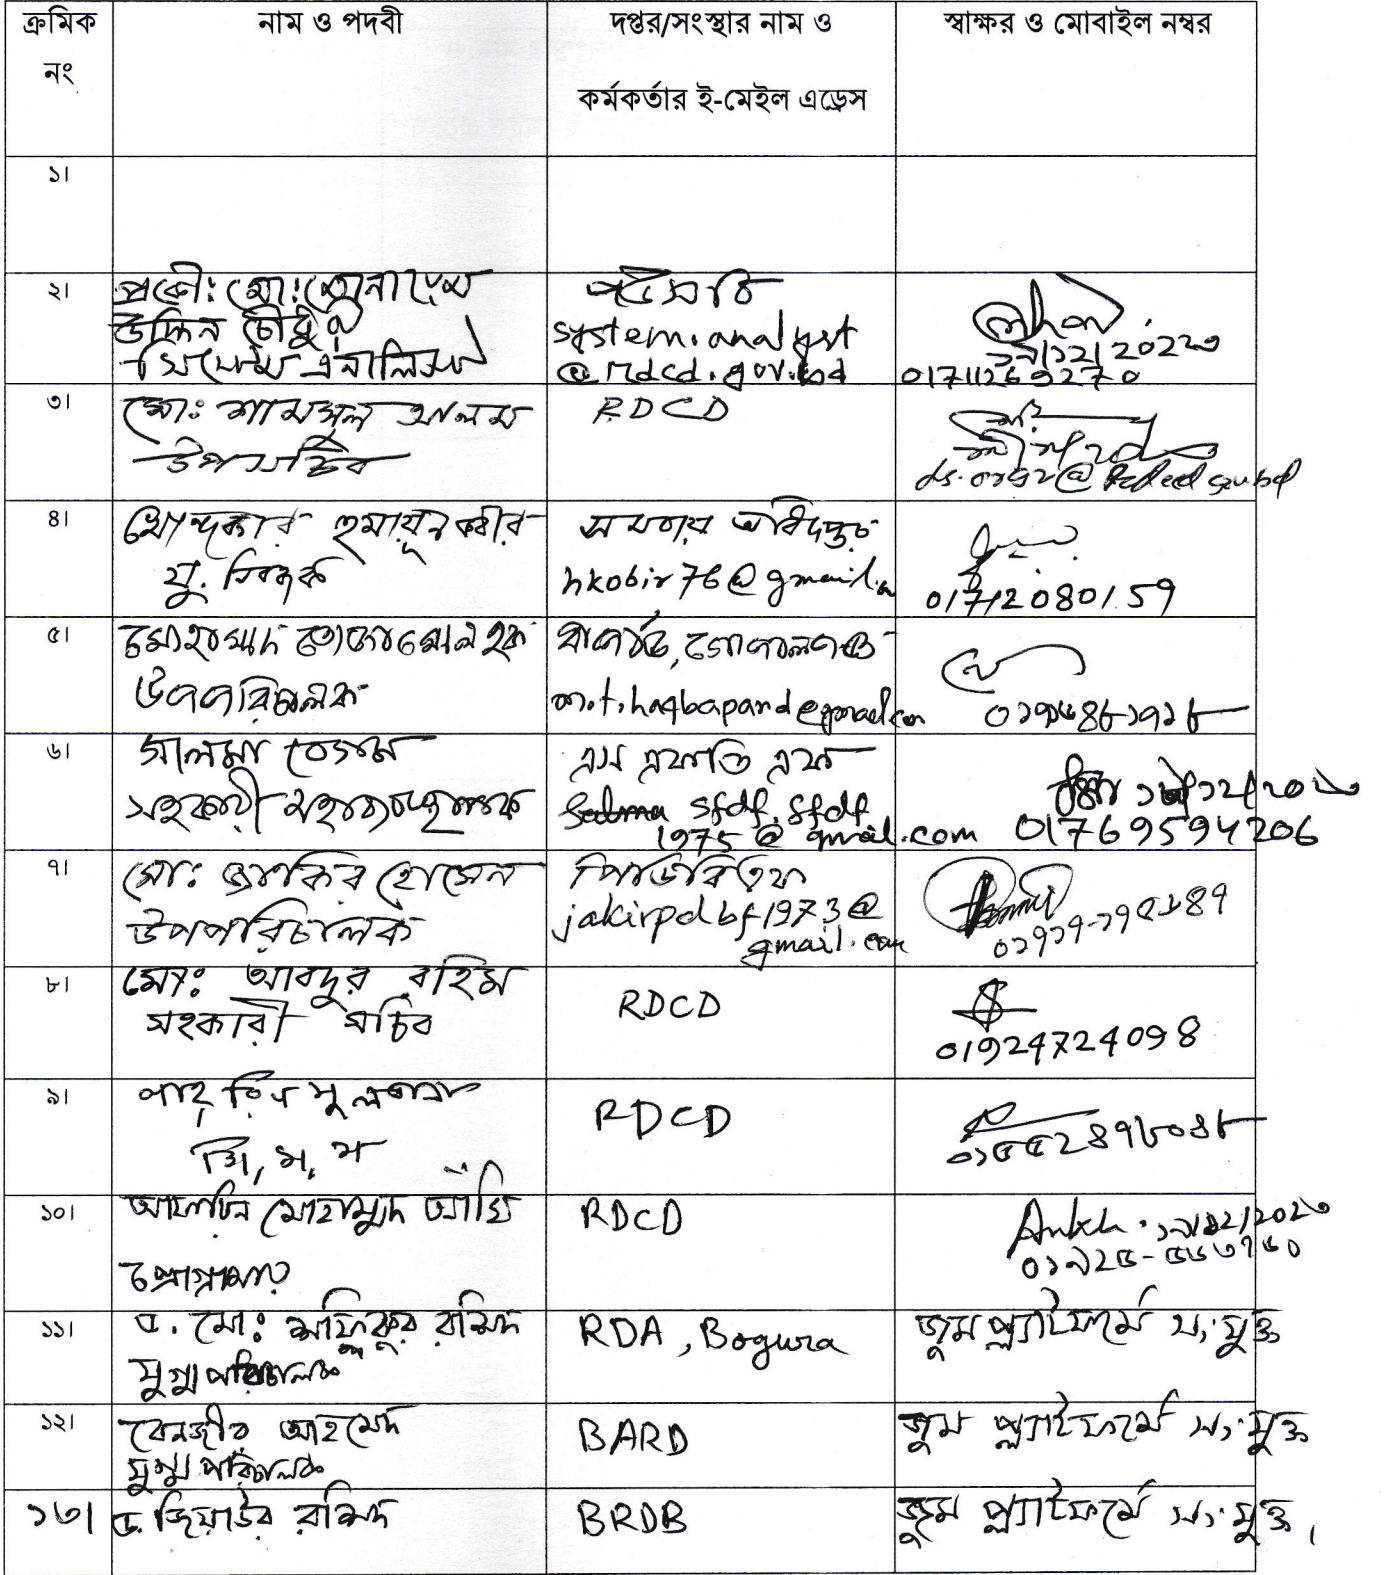 ক্রমিক নং | নাম ও পদবী | দপ্তর/সংস্থার নাম ও কর্মকর্তার ই-মেইল এড্রেস | স্বাক্ষর ও মোবাইল নম্বর
১।
২।
প্রকৌ: মো:
উদ্দিন চৌধুরী
সিস্টেম এনালিস্ট
system.analyst
@rdcd.gov.bd
01711269270
৩।
মো: শামসুল আলম
উপসচিব
RDCD
৪।
খোন্দকার হুমায়ূন কবীর
যু. নিবন্ধক
সমবায় অধিদপ্তর
hkobir76@gmail.
01712080159
৫।
মোহাম্মদ তোফাজ্জোল হক
উপপরিচালক
বাপার্ড, গোপালগঞ্জ
m.t.haqbapard@gmail.com
৬।
সালমা বেগম
সহকারী মহাব্যবস্থাপক
এস এফডি এফ
sfdf.sfdf
1975@gmail.com
01769594206
৭।
মো: জাকির হোসেন
উপপরিচালক
পিডিবিএফ
jakirpdbf1973@
gmail.com
৮।
মো: আবদুর রহিম
সহকারী সচিব
RDCD
01924724098
৯।
সুলতানা
সি, স, স
RDCD
১০।
মোহাম্মদ
প্রোগ্রামার
RDCD
১১।
ড. মো: শফিকুর রশিদ
যুগ্ম পরিচালক
RDA, Bogura
জুম প্ল্যাটফর্মে সংযুক্ত
১২।
বেনজীর আহমেদ
যুগ্ম পরিচালক
BARD
জুম প্ল্যাটফর্মে সংযুক্ত
১৩।
ড. জিয়াউর রশিদ
BRDB
জুম প্ল্যাটফর্মে সংযুক্ত।